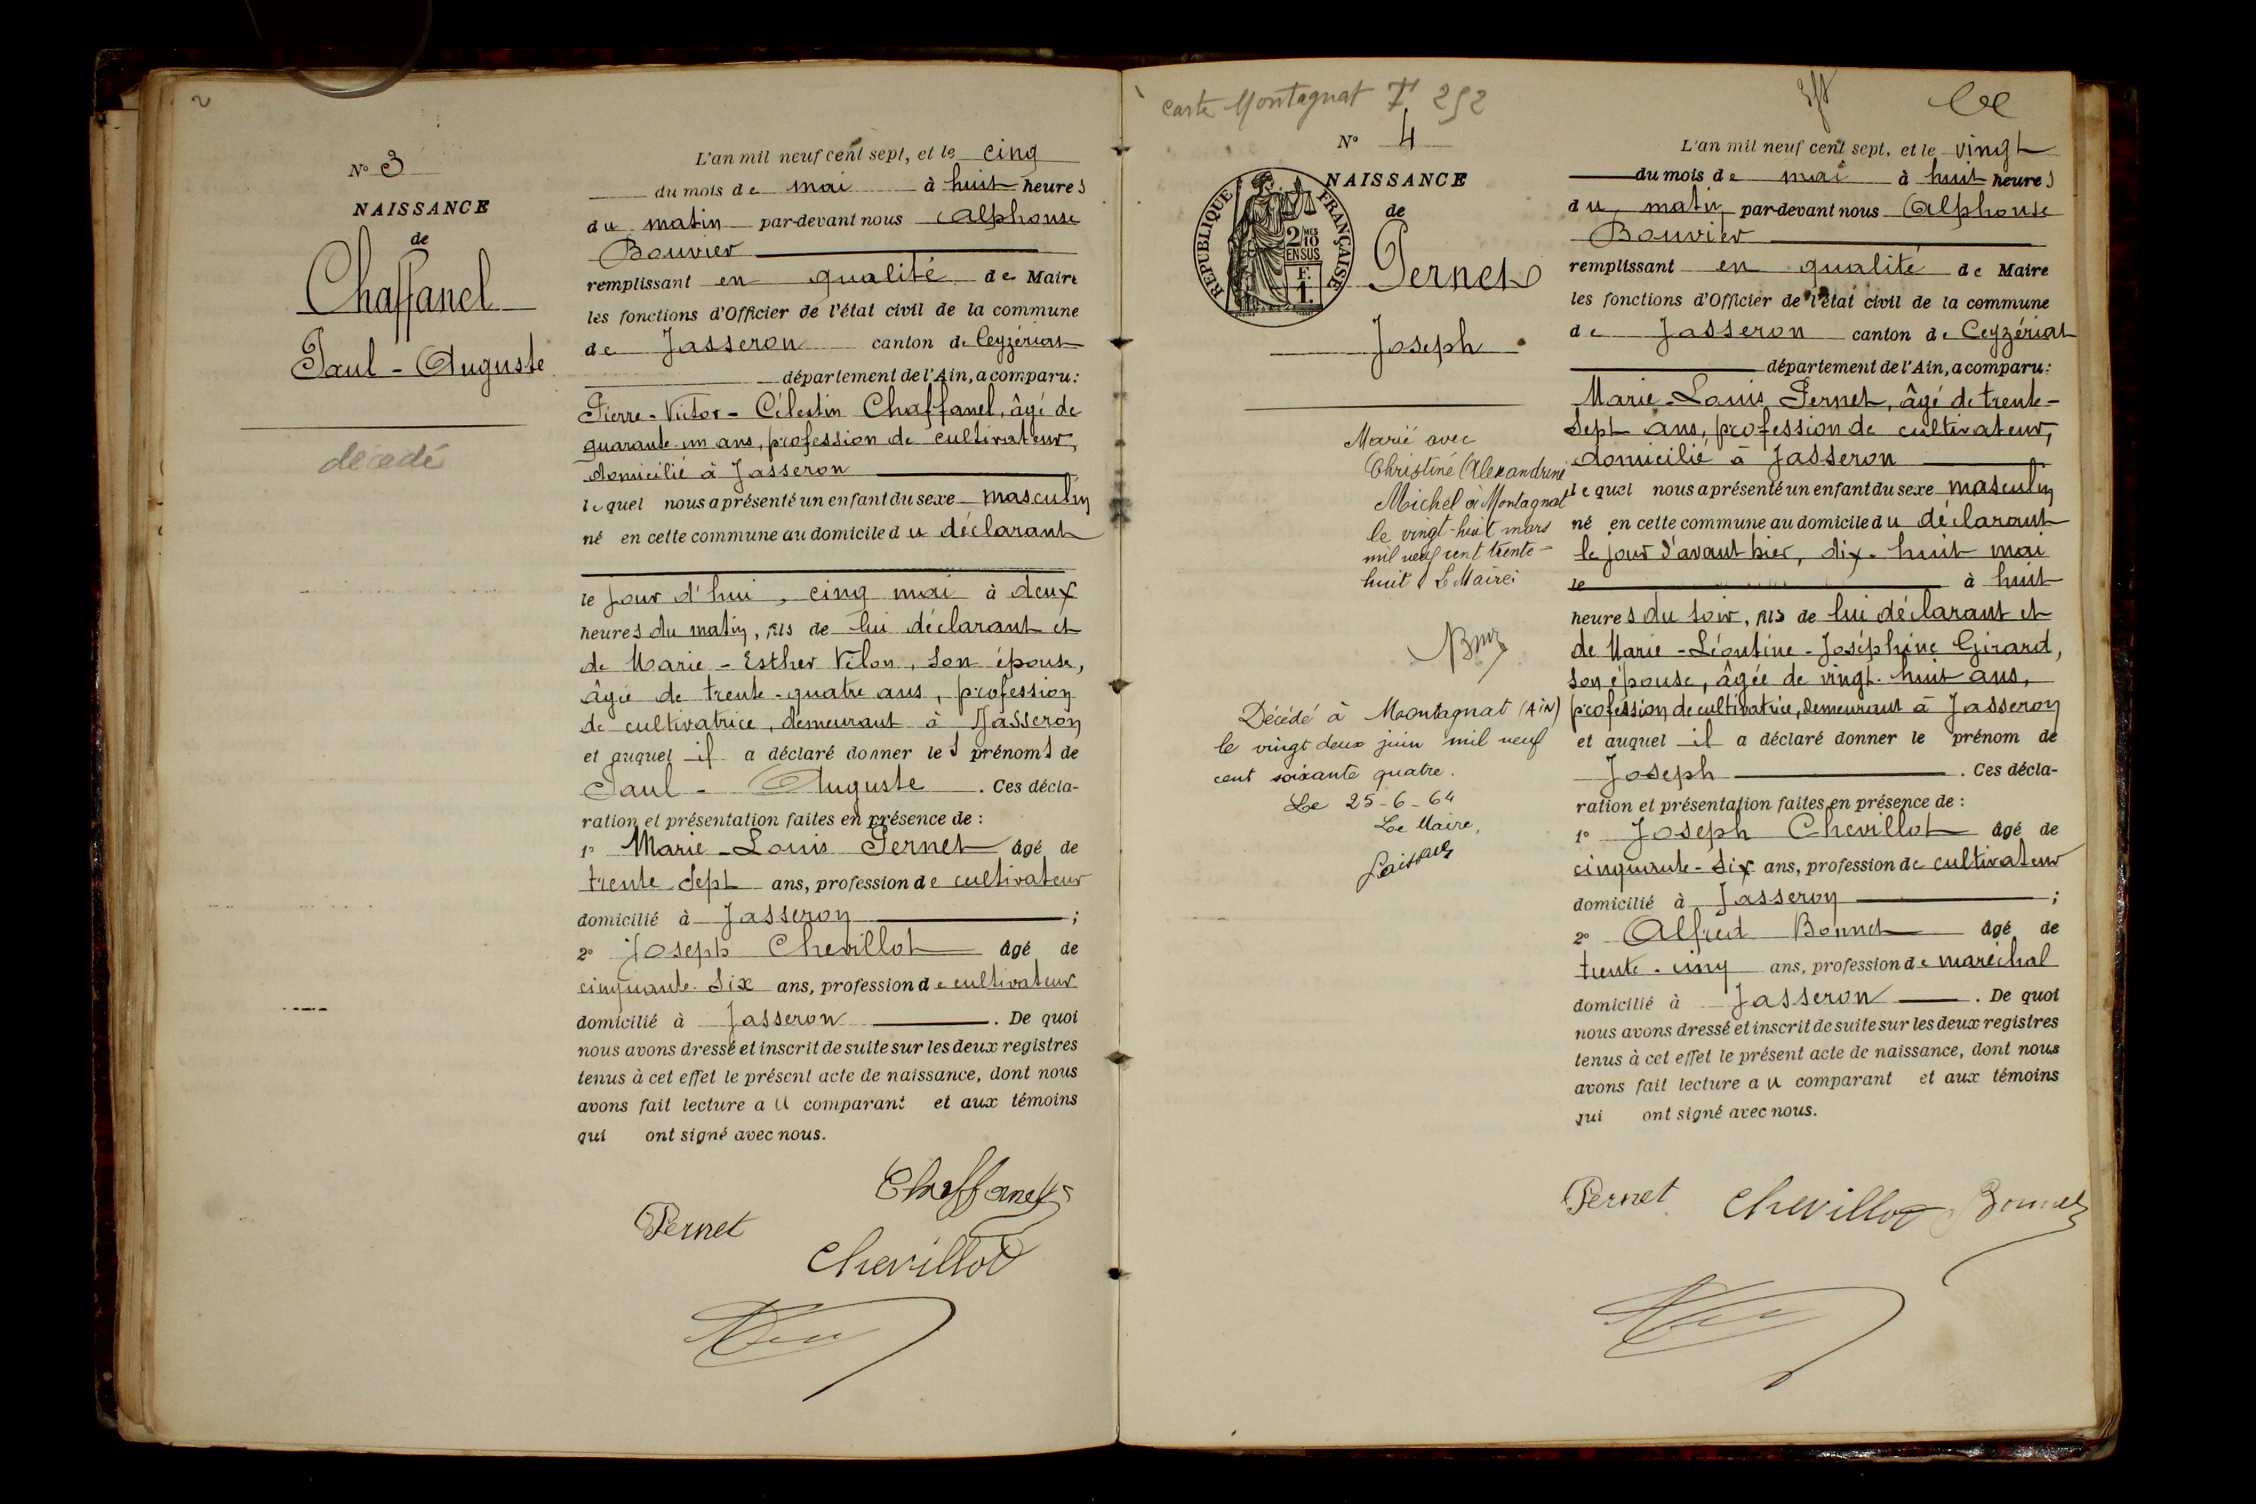 2
N° 3
NAISSANCE
de
Chaffanel
Paul - Auguste
décédé
L'an mil neuf cent sept, et le cinq
du mois de mai à huit heures
du matin par-devant nous Alphonse
Bouvier
remplissant en qualité de Maire
les fonctions d'Officier de l'état civil de la commune
de Jasseron canton de Ceyzériat
département de l'Ain, a comparu:
Pierre-Victor-Célestin Chaffanel, âgé de
quarante-un ans, profession de cultivateur,
domicilié à Jasseron
lequel nous a présenté un enfant du sexe masculin
né en cette commune au domicile du déclarant
le jour d'hui, cinq mai à deux
heures du matin, fils de lui déclarant et
de Marie-Esther Vélon, son épouse,
âgée de trente-quatre ans, profession
de cultivatrice, demeurant à Jasseron
et auquel il a déclaré donner les prénoms de
Paul - Auguste. Ces décla-
ration et présentation faites en présence de :
1° Marie-Louis Pernet âgé de
trente-sept ans, profession de cultivateur
domicilié à Jasseron ;
2° Joseph Chevillot âgé de
cinquante-six ans, profession de cultivateur
domicilié à Jasseron. De quoi
nous avons dressé et inscrit de suite sur les deux registres
tenus à cet effet le présent acte de naissance, dont nous
avons fait lecture au comparant et aux témoins
qui ont signé avec nous.
Chaffanel
Pernet
Chevillot
carte Montagnat 252
N° 4
NAISSANCE
de
Pernet
Joseph
RÉPUBLIQUE FRANÇAISE
2/10MES
EN SUS
F.
1.
Marié avec
Christine Alexandrine
Michel à Montagnat
le vingt-huit mars
mil neuf cent trente-
huit Le Maire:
Décédé à Montagnat (AIN)
le vingt deux juin mil neuf
cent soixante quatre.
Le 25-6-64
Le Maire,
L'an mil neuf cent sept, et le vingt
du mois de mai à huit heures
du matin par-devant nous Alphonse
Bouvier
remplissant en qualité de Maire
les fonctions d'Officier de l'état civil de la commune
de Jasseron canton de Ceyzériat
département de l'Ain, a comparu:
Marie-Louis Pernet, âgé de trente-
sept ans, profession de cultivateur,
domicilié à Jasseron
lequel nous a présenté un enfant du sexe masculin
né en cette commune au domicile du déclarant
le jour d'avant hier, dix-huit mai
le à huit
heures du soir, fils de lui déclarant et
de Marie-Léontine-Joséphine Girard,
son épouse, âgée de vingt-huit ans,
profession de cultivatrice, demeurant à Jasseron
et auquel il a déclaré donner le prénom de
Joseph. Ces décla-
ration et présentation faites en présence de :
1° Joseph Chevillot âgé de
cinquante-six ans, profession de cultivateur
domicilié à Jasseron ;
2° Alfred Bonnet âgé de
trente-cinq ans, profession de maréchal
domicilié à Jasseron. De quoi
nous avons dressé et inscrit de suite sur les deux registres
tenus à cet effet le présent acte de naissance, dont nous
avons fait lecture au comparant et aux témoins
qui ont signé avec nous.
Pernet Chevillot Bonnet